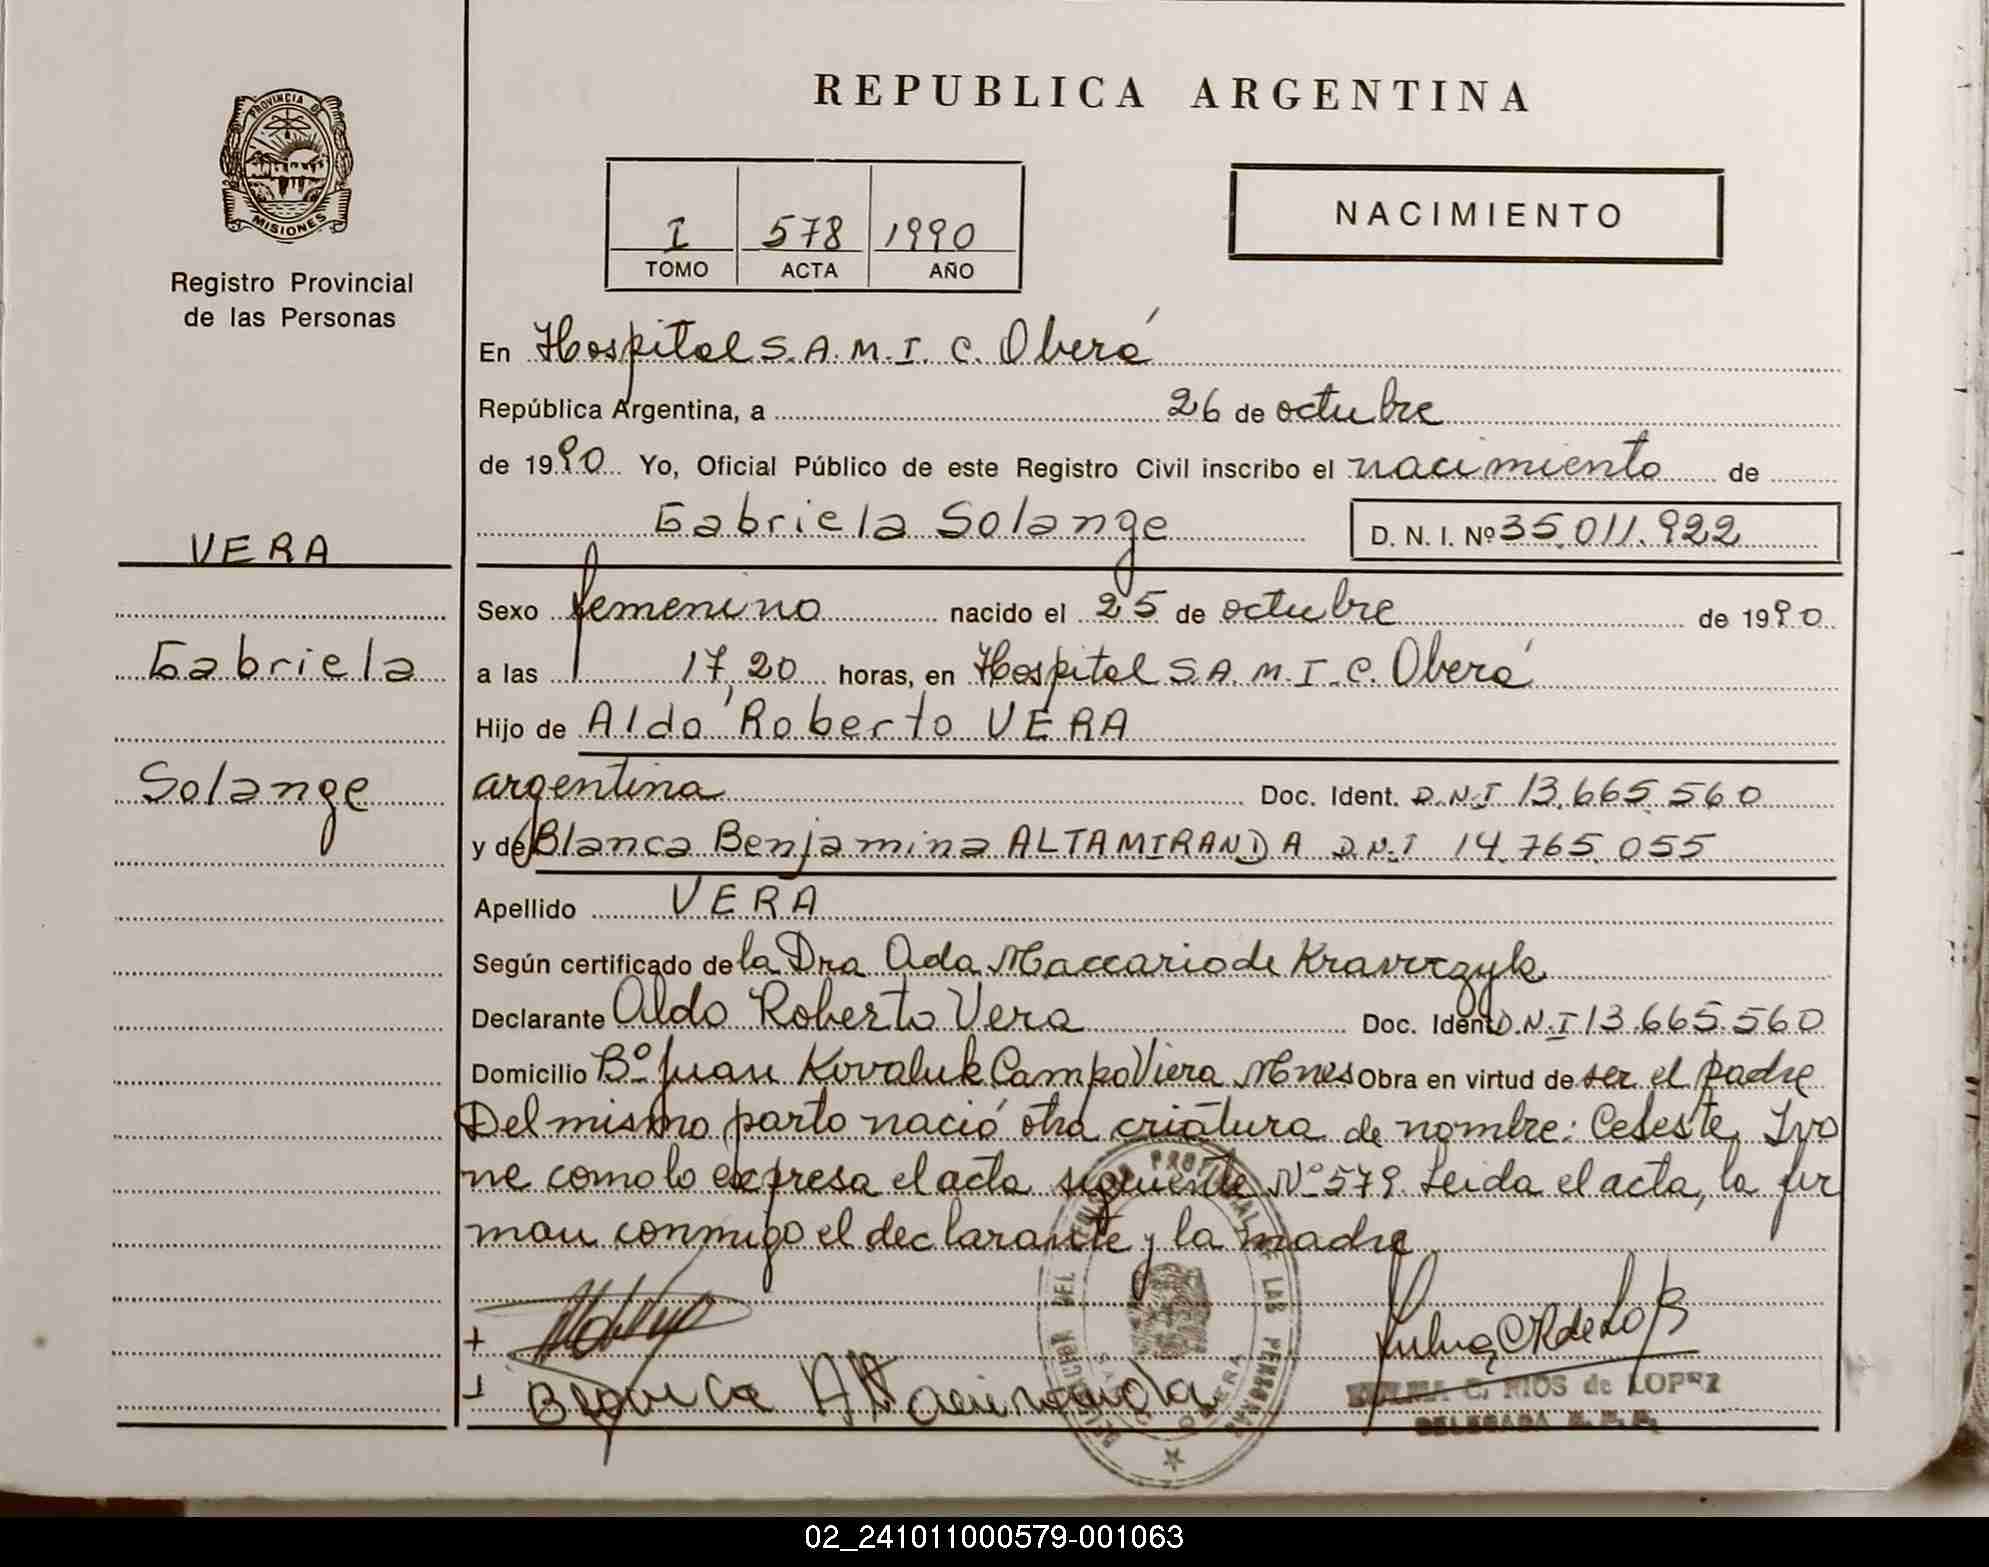 REPUBLICA ARGENTINA
PROVINCIA DE
MISIONES
Registro Provincial
de las Personas
I 578 1990
TOMO ACTA AÑO
NACIMIENTO
En Hospital S.A.M.I.C. Oberá
República Argentina, a 26 de octubre
de 1990 Yo, Oficial Público de este Registro Civil inscribo el nacimiento de
Gabriela Solange D. N. I. Nº 35.011.922
VERA
Gabriela
Solange
Sexo femenino nacido el 25 de octubre de 1990
a las 17,20 horas, en Hospital S.A.M.I.C. Oberá
Hijo de Aldo Roberto VERA
argentina Doc. Ident. D.N.I 13.665.560
y de Blanca Benjamina ALTAMIRANDA D.N.I 14.765.055
Apellido VERA
Según certificado de la Dra Ada Maccario de Kravczyk
Declarante Aldo Roberto Vera Doc. Ident D.N.I 13.665.560
Domicilio Bº Juan Kovaluk Campo Viera Mnes Obra en virtud de ser el padre
Del mismo parto nació otra criatura de nombre: Celeste Ivo
ne como lo expresa el acta siguiente Nº 579 Leida el acta, la fir
man conmigo el declarante y la madre
C. RIOS de LOPEZ
DELEGADA R. P. P.
02_241011000579-001063